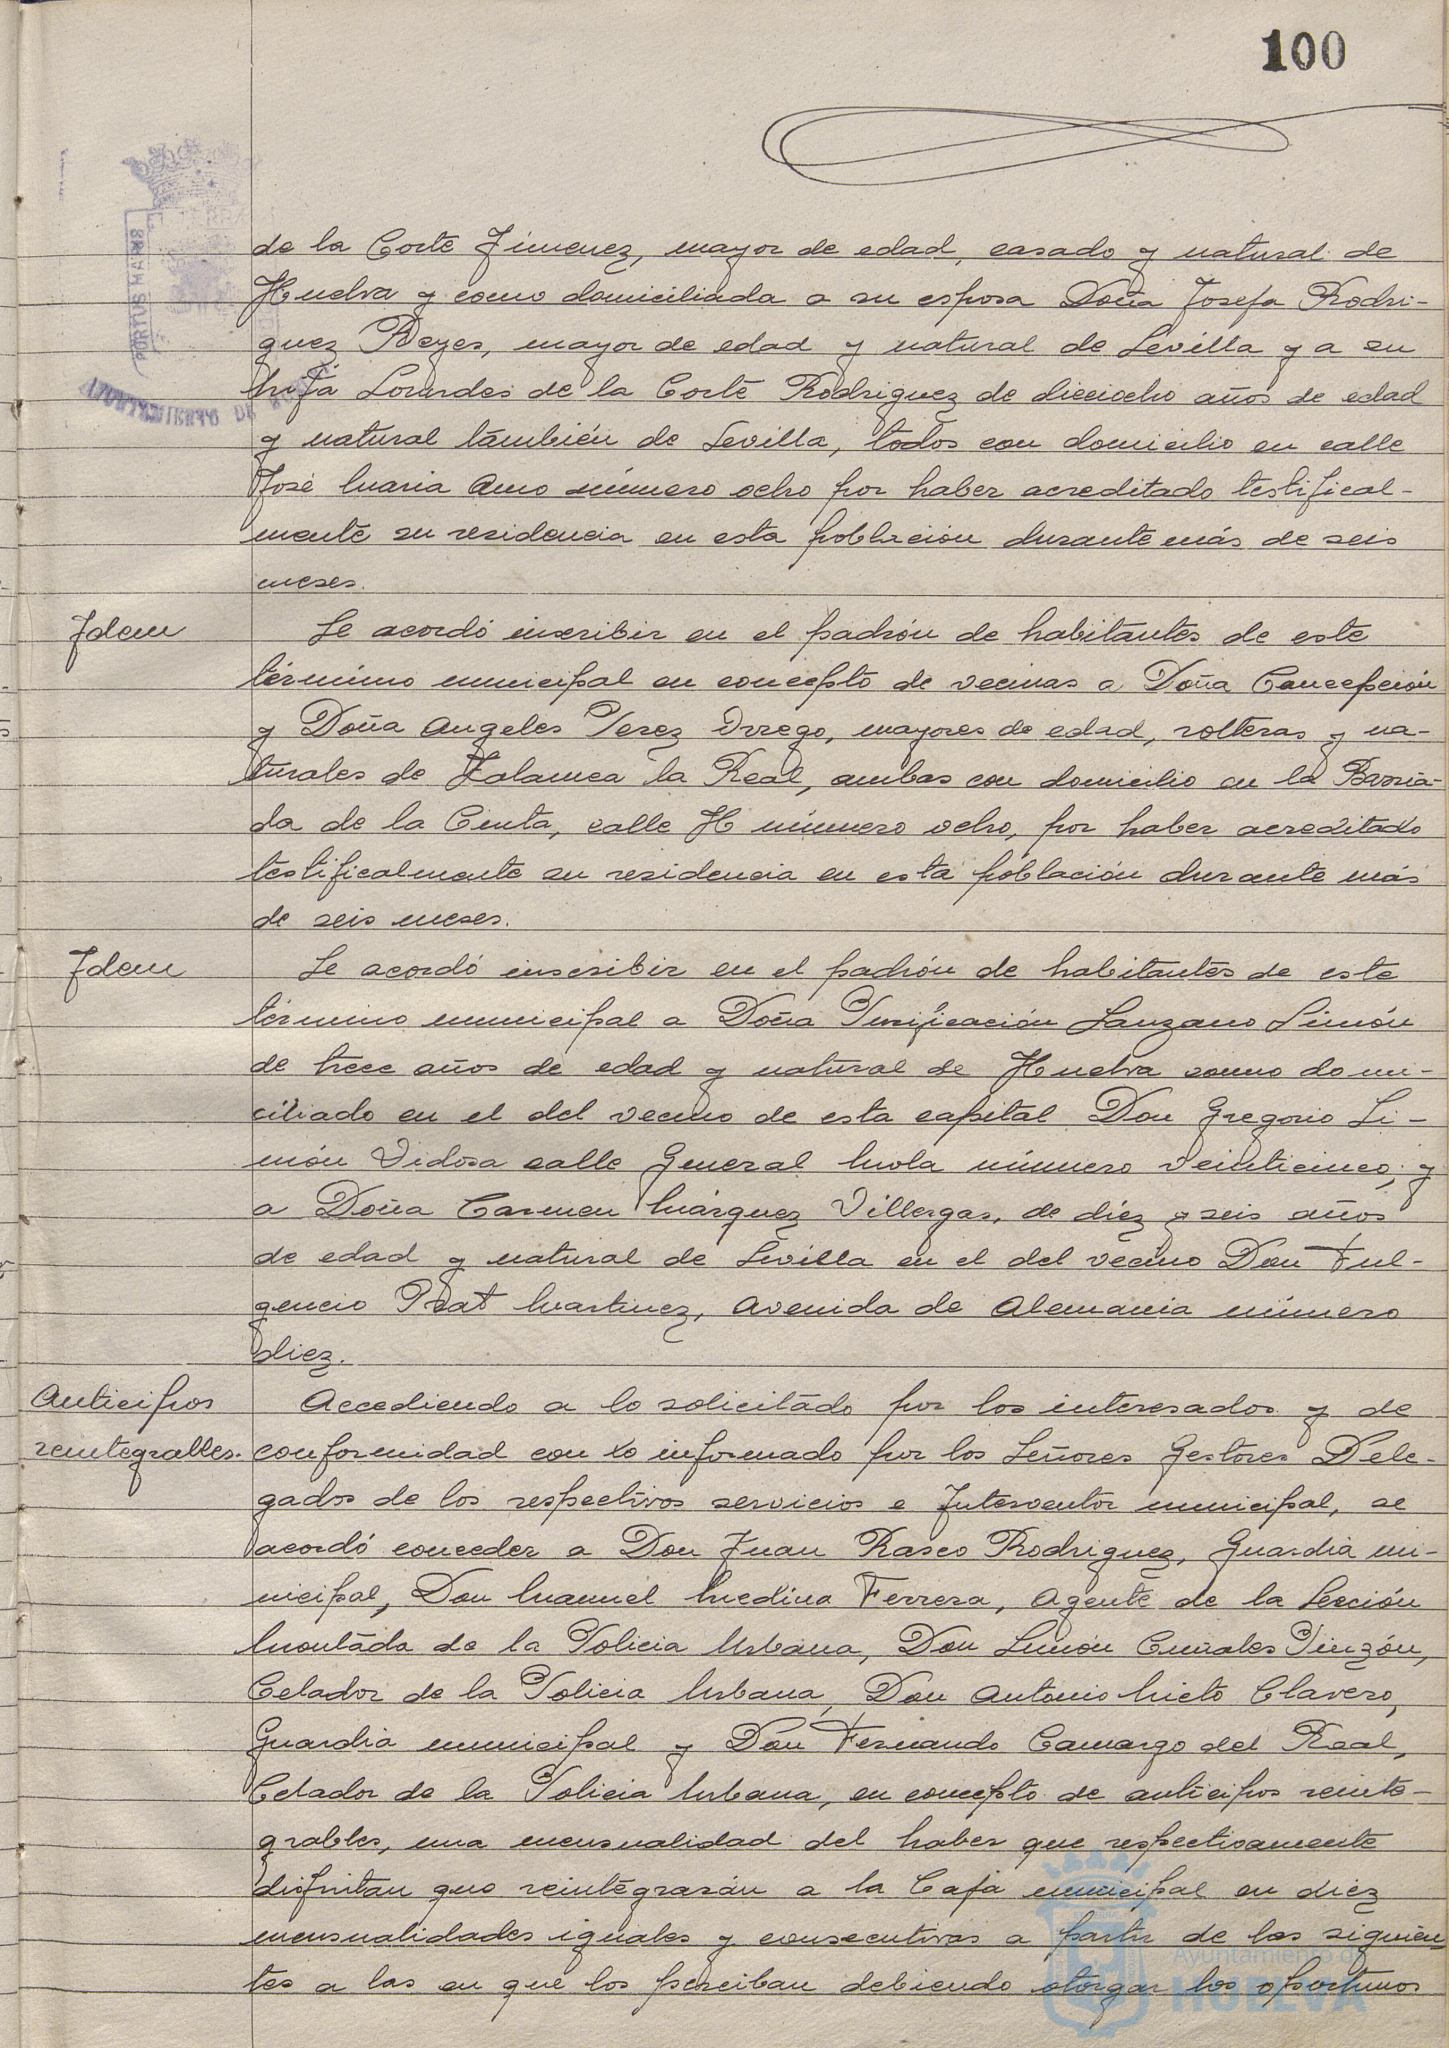 100
de la Corte Jimenez, mayor de edad, casado y natural de
Huelva y como domiciliada a su esposa Doña Josefa Rodri-
guez Reyes, mayor de edad y natural de Sevilla y a su
hija Lourdes de la Corte Rodriguez de dieciocho años de edad
y natural también de Sevilla, todos con domicilio en calle
José Maria Amo número ocho por haber acreditado testifical-
mente su residencia en esta población durante más de seis
meses.
Idem
Se acordó inscribir en el padrón de habitantes de este
término municipal en concepto de vecinas a Doña Concepción
y Doña Angeles Perez Orrego, mayores de edad, solteras y na-
turales de Zalamea la Real, ambas con domicilio en la Barria-
da de la Cinta, calle H número ocho, por haber acreditado
testificalmente su residencia en esta población durante más
de seis meses.
Idem
Se acordó inscribir en el padrón de habitantes de este
término municipal a Doña Purificación Lanzano Simón
de trece años de edad y natural de Huelva como domi-
ciliado en el del vecino de esta capital Don Gregorio Si-
món Vidosa calle General Mola número veinticinco, y
a Doña Carmen Márquez Villergas, de diez y seis años
de edad y natural de Sevilla en el del vecino Don Ful-
gencio Prat Martinez, Avenida de Alemania número
diez.
Anticipos
reintegrables.
Accediendo a lo solicitado por los interesados y de
conformidad con lo informado por los Señores Gestores Dele-
gados de los respectivos servicios e Interventor municipal, se
acordó conceder a Don Juan Rasco Rodriguez, Guardia mu-
nicipal, Don Manuel Medina Ferrera, Agente de la Sección
Montada de la Policia Urbana, Don Simón Pinzón,
Celador de la Policia Urbana, Don Antonio Nieto Clavero,
Guardia municipal y Don Fernando Camargo del Real,
Celador de la Policia Urbana, en concepto de anticipos reinte-
grables, una mensualidad del haber que respectivamente
disfrutan que reintegrarán a la Caja municipal en diez
mensualidades iguales y consecutivas a partir de las siguien-
tes a las en que los perciban debiendo otorgar los oportunos
PORTUS MARIS
AYUNTAMIENTO DE
Ayuntamiento de
HUELVA